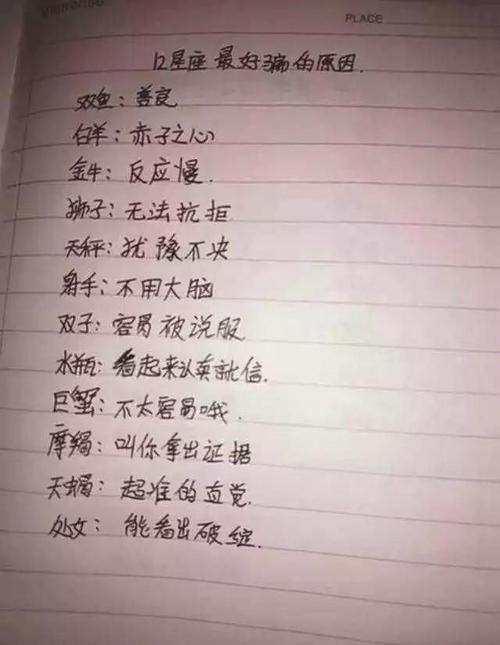 PLACE
12星座最好骗的原因.
双鱼:善良
白羊:赤子之心
金牛:反应慢.
狮子:无法抗拒
天秤:犹豫不决
射手:不用大脑
双子:容易被说服
水瓶:看起来认真就信.
巨蟹:不太容易哦.
摩羯:叫你拿出证据
天蝎:超准的直觉.
处女:能看出破绽.